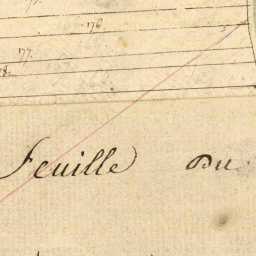 176.
177.
Feuille Du